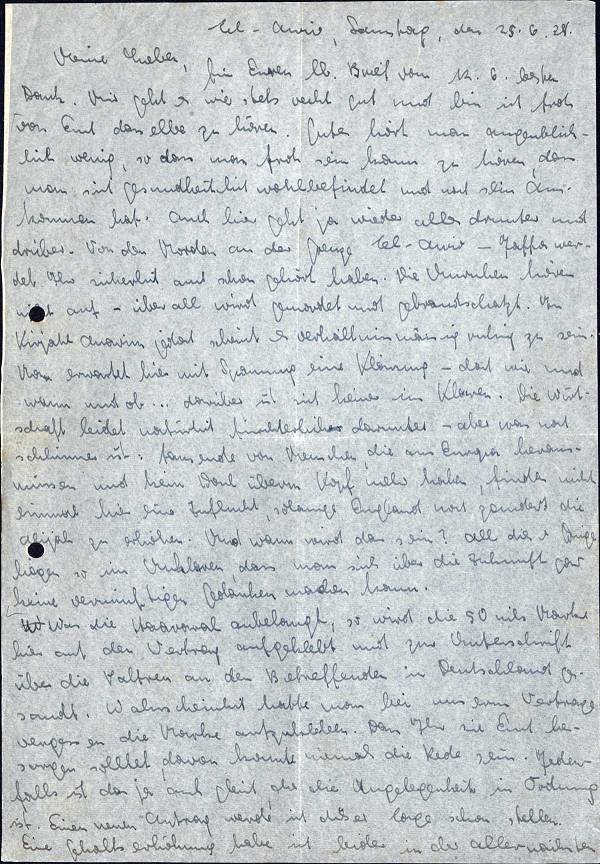 Tel-Aviv, Samstag, den 25.6.38.
Meine Lieben,
für Euren lb. Brief vom 12.6. besten
Dank. Mir geht es wie stets recht gut und bin ich froh
von Euch dasselbe zu hören. Gutes hört man augenblick-
lich wenig, so dass man froh sein kann zu hören, dass
man sich gesundheitlich wohlbefindet und noch sein Aus-
kommen hat. Auch hier geht ja wieder alles drunter und
drüber. Von den Morden an der Grenze Tel-Aviv - Jaffa wer-
det Ihr sicherlich auch schon gehört haben. Die Unruhen hören
nicht auf - überall wird gemordet und gebrandschatzt. In
Kirjath Anavim jedoch scheint es verhältnismässig ruhig zu sein.
Man erwartet hier mit Spannung eine Klärung - doch wie und
wann und ob... darüber ist sich keiner im Klaren. Die Wirt-
schaft leidet natürlich fürchterlich darunter - aber was noch
schlimmer ist: tausende von Menschen, die aus Europa heraus-
müssen und kein Dach überm Kopf mehr haben, finden nicht
einmal hier eine Zuflucht, solange England noch zaudert die
Alijah zu erhöhen. Und wann wird das sein? All diese Dinge
liegen so im Unklaren, dass man sich über die Zukunft gar
keine vernünftigen Gedanken machen kann.
Was die Haavarah anbelangt, so wird die 50 mils Marke
hier auf den Vertrag aufgeklebt und zur Unterschrift
über die Paltreu an den Betreffenden in Deutschland ge-
sandt. Wahrscheinlich hatte man bei unserm Vertrage
vergessen die Marke aufzukleben. Dass Ihr sie Euch be-
sorgen solltet, davon konnte niemals die Rede sein. Jeden-
falls ist das ja auch gleich, da die Angelegenheit in Ordnung
ist. Einen neuen Antrag werde ich dieser Tage schon stellen.
Eine Gehaltserhöhung habe ich leider in der allernächsten